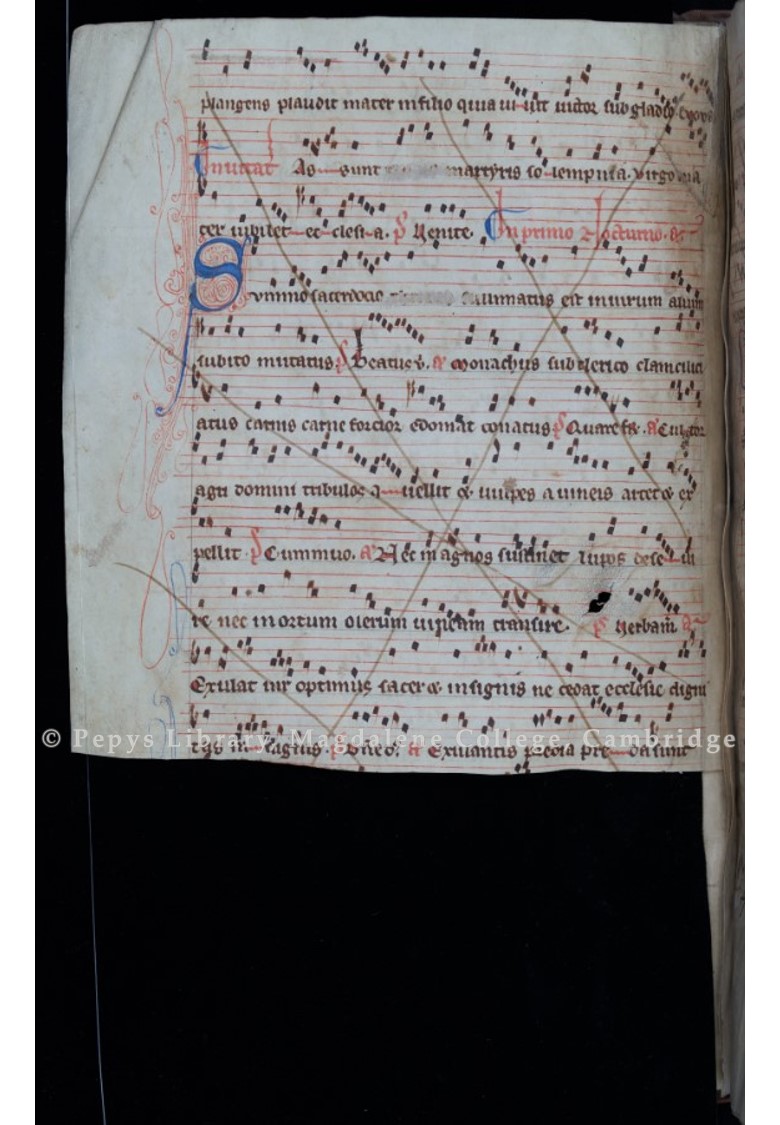 plangens plaudit mater in filio quia uiuit uictor sub gladio
Inuitat As sunt martyris so lempnia. uirgo ma
ter iubilet ecclesia. Venite. In primo Nocturno.
Summo sacerdocio sullimatus est in uirum alium
subito mutatus Beatus v. Monachus sub clerico clam
atus carnis carne forcior edomat conatus Quare Cultor
agri domini tribulos a uellit & uulpes a uineis arcet & ex
pellit Cum inuo. Nec in agnos sustinet lupos dese ui
re nec in ortum olerum uulpeam transire. verbam
Exulat uir optimus sacer & insignis ne cedat ecclesie digni
© Pepys Library, Magdalene College, Cambridge
Exulantis predia pre